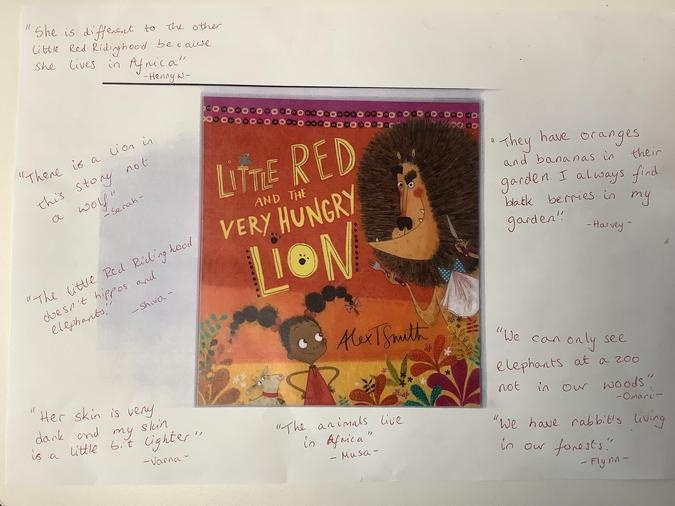 "She is different to the other
Little Red Ridinghood because
she lives in Africa"
-Henry W-
"There is a lion in
this story not
a wolf"
-Sarah-
"The little Red Ridinghood
doesn't hippos and
elephants."
-Shiva-
"Her skin is very
dark and my skin
is a little bit lighter"
-Varna-
LITTLE RED
AND THE
VERY HUNGRY
LION
Alex T Smith
"The animals live
in Africa"
-Musa-
"They have oranges
and bananas in their
garden. I always find
black berries in my
garden".
-Harvey-
"We can only see
elephants at a zoo
not in our woods".
-Omari-
"We have rabbit's living
in our forests."
-Flynn-